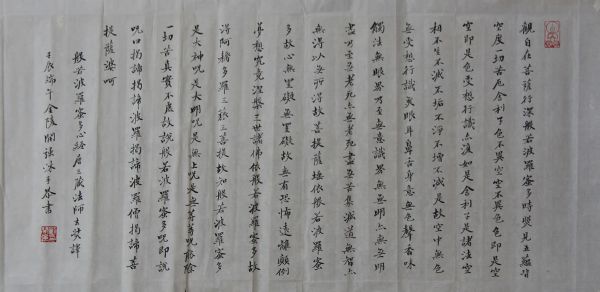 觀自在菩薩行深般若波羅蜜多時照見五蘊皆
空度一切苦厄舍利子色不異空空不異色色即是空
空即是色受想行識亦復如是舍利子是諸法空
相不生不滅不垢不淨不增不減是故空中無色
無受想行識無眼耳鼻舌身意無色聲香味
觸法無眼界乃至無意識界無無明亦無無明
盡乃至無老死亦無老死盡無苦集滅道無智亦
無得以無所得故菩提薩埵依般若波羅蜜
多故心無罣礙無罣礙故無有恐怖遠離顛倒
夢想究竟涅槃三世諸佛依般若波羅蜜多故
得阿耨多羅三藐三菩提故知般若波羅蜜多
是大神呪是大明呪是無上呪是無等等呪能除
一切苦真實不虛故說般若波羅蜜多呪即說
呪曰揭諦揭諦波羅揭諦波羅僧揭諦菩
提薩婆呵
般若波羅蜜多心經唐三藏法師玄奘譯
壬辰端午金陵閒弦沐手恭書